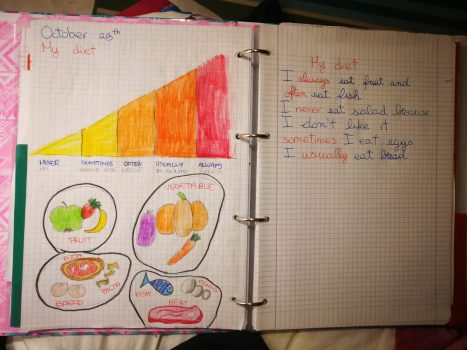 October 29th
My diet
NEVER SOMETIMES OFTEN USUALLY ALWAYS
MAI QUALCHE VOLTA SPESSO DI SOLITO SEMPRE
VEGETABLE
FRUIT
PIZZA
PASTA
BREAD
FISH
MEAT
My diet
I always eat fruit and
often eat fish
I never eat salad because
I don't like it
sometimes I eat eggs
I usually eat bread